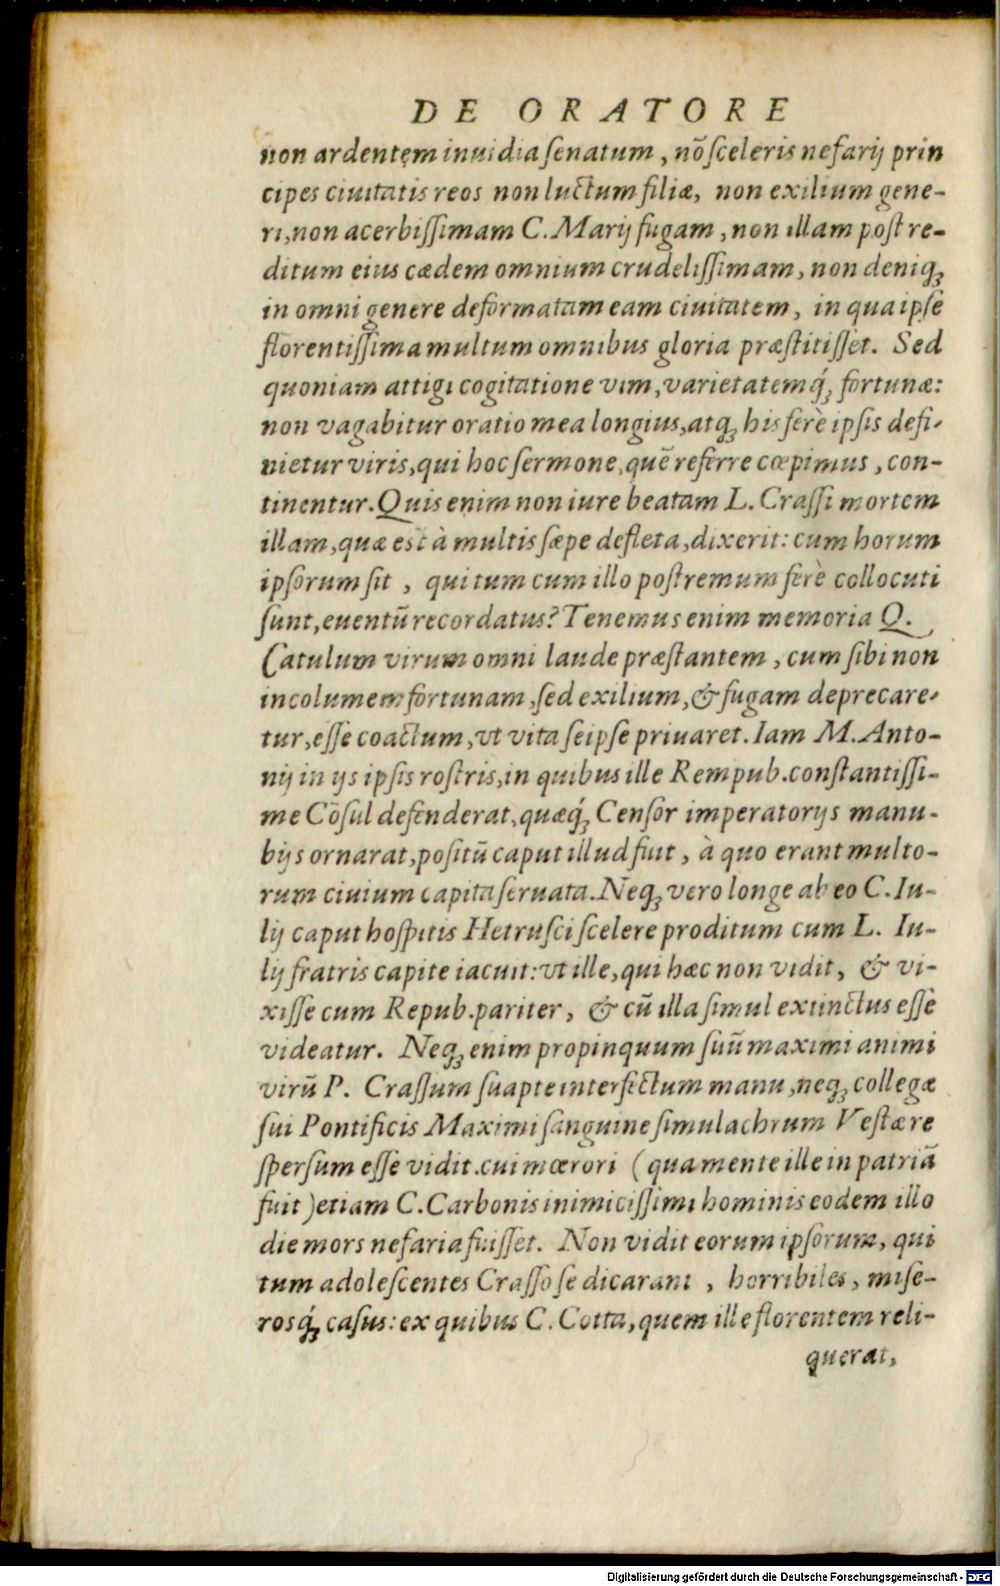 DE ORATORE
non ardentem inuidia ſenatum, nõ ſceleris nefarij prin
cipes ciuitatis reos non luctum filiæ, non exilium gene-
ri, non acerbiſſimam C. Marij fugam, non illam poſt re-
ditum eius cædem omnium crudeliſſimam, non deniq;
in omni genere deformatam eam ciuitatem, in qua ipſe
florentiſſima multum omnibus gloria præſtitiſſet. Sed
quoniam attigi cogitatione vim, varietatemq́; fortunæ:
non vagabitur oratio mea longius, atq; his ferè ipſis defi-
nietur viris, qui hoc ſermone, quẽ referre cœpimus, con-
tinentur. Quis enim non iure beatam L. Craſſi mortem
illam, quæ est à multis ſæpe defleta, dixerit: cum horum
ipſorum ſit, qui tum cum illo poſtremum ferè collocuti
ſunt, euentũ recordatus? Tenemus enim memoria Q.
Catulum virum omni laude præſtantem, cum ſibi non
incolumem fortunam, ſed exilium, & fugam deprecare-
tur, eſſe coactum, vt vita ſeipſe priuaret. Iam M. Anto-
nij in ijs ipſis roſtris, in quibus ille Rempub. conſtantiſſi-
me Cõſul defenderat, quæq́; Cenſor imperatorijs manu-
bijs ornarat, poſitũ caput illud fuit, à quo erant multo-
rum ciuium capita ſeruata. Neq; vero longe ab eo C. Iu-
lij caput hoſpitis Hetruſci ſcelere proditum cum L. Iu-
lij fratris capite iacuit: vt ille, qui hæc non vidit, & vi-
xiſſe cum Repub. pariter, & cũ illa ſimul extinctus eſſe
videatur. Neq; enim propinquum ſuũ maximi animi
virũ P. Craſſum ſuapte interfectum manu, neq; collegæ
ſui Pontificis Maximi ſanguine ſimulachrum Veſtæ re
ſperſum eſſe vidit. cui mœrori (qua mente ille in patriã
fuit) etiam C. Carbonis inimiciſſimi hominis eodem illo
die mors nefaria fuiſſet. Non vidit eorum ipſorum, qui
tum adoleſcentes Craſſo ſe dicarant, horribiles, miſe-
rosq́; caſus: ex quibus C. Cotta, quem ille florentem reli-
querat,
Digitalisierung gefördert durch die Deutsche Forschungsgemeinschaft - DFG